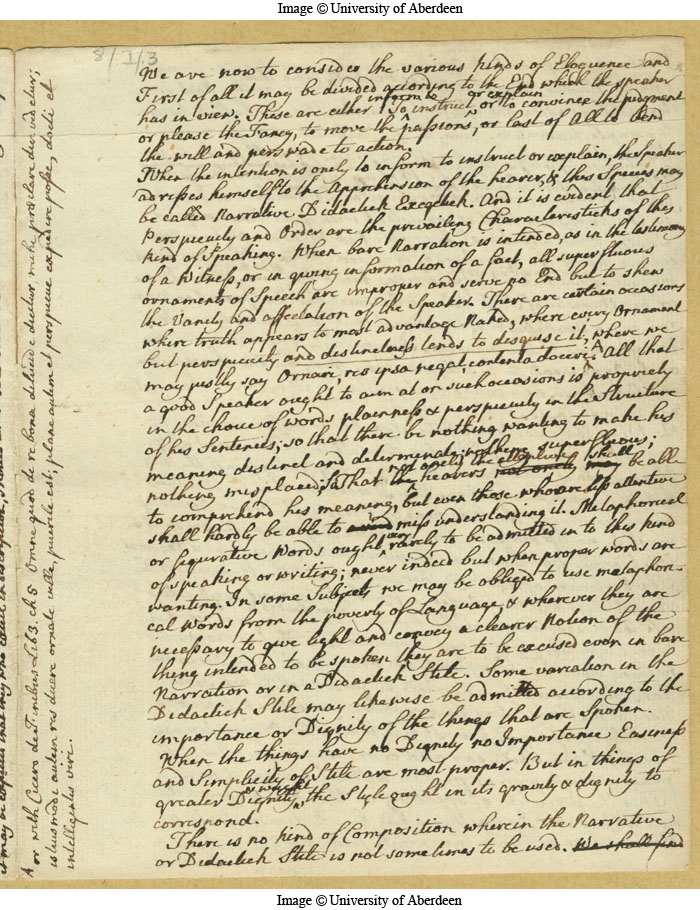 Image © University of Aberdeen
8/1/3
We are now to consider the various kinds of Eloquence and
First of all it may be divided according to the End which the speaker
has in view. These are either inform to To instruct or explain or to convince the judgment
or please the Fancy, to move the passions, or last of All to bend
the will and perswade to action.
When the intention is onely to inform to instruct or explain, the Speaker
adresses himself to the Apprehension of the hearer, & this Species may
be called Narrative. Didactick Exegetick. And it is evident that
Perspicuity and Order are the prevailing Characteristicks of this
kind of Speaking. When bare Narration is intended, as in the testimony
of a Witness, or in giving information of a fact, all superfluous
ornaments of Speech are improper and serve no End but to shew
the Vanity and affectation of the Speaker. There are certain occasions
where truth appears to most advantage Naked, where every Ornament
but perspicuity and distinctness tends to disguise it, where we
may justly say Ornari, res ipsa negat, contenta doceri. A All that
a good Speaker ought to aim at on such occasions is propriety
in the choice of words plainness & perspicuity in the Structure
of his Sentences; so that there be nothing wanting to make his
meaning distinct and determinate; nothing superfluous;
nothing misplaced; So That not onely the attentive hearers shall be able
to comprehend his meaning, but even those who are less attentive
shall hardly be able to miss understanding it. Metaphorical
or figurative Words ought very rarely to be admitted in to this kind
of speaking or writing; never indeed but when proper words are
wanting. In some Subjects we may be obliged to use metaphori-
cal words from the poverty of Language, & wherever they are
necessary to give light and convey a clearer Notion of the
thing intended to be spoken they are to be excused even in bare
Narration or in a Didactick Stile. Some variation in the
Didactick Stile may likewise be admitted according to the
importance or Dignity of the things that are Spoken.
When the things have no Dignity no Importance Easiness
and Simplicity of Stile are most proper. But in things of
greater Dignity & weight the Style ought in its gravity & dignity to
correspond.
There is no kind of Composition wherein the Narrative
or Didactick Stile is not sometimes to be used. We shall find
A or with Cicero de Finibus Lib 3. ch 5 Omne quod de re bona dilucide dicitur mihi præclare dici videtur;
istiusmodi autem res dicere ornate velle, puerile est; plane autem et perspicue expedire posse, docti et
intelligentis viri.
Image © University of Aberdeen